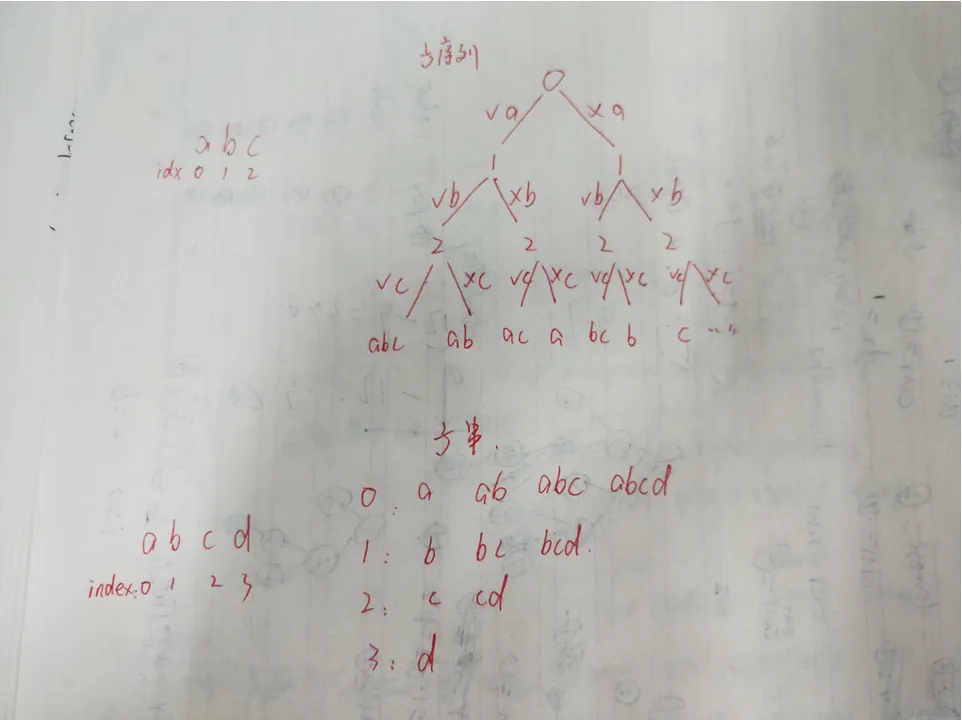 子序列
0
√a ×a
a b c
idx 0 1 2
1 1
√b ×b √b ×b
2 2 2 2
√c ×c √c ×c √c ×c √c ×c
abc ab ac a bc b c ""
子串.
0: a ab abc abcd
a b c d
index:0 1 2 3
1: b bc bcd.
2: c cd
3: d